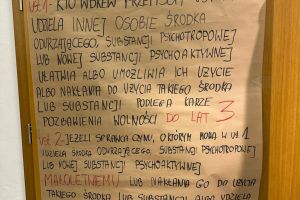 ust. 1- KTO WBREW PRZEPISOM
UDZIELA INNEJ OSOBIE ŚRODKA
ODURZAJĄCEGO, SUBSTANCJI PSYCHOTROPOWEJ
LUB NOWEJ SUBSTANCJI PSYCHOAKTYWNEJ
UŁATWIA ALBO UMOŻLIWIA ICH UŻYCIE
ALBO NAKŁANIA DO UŻYCIA TAKIEGO ŚRODKA
LUB SUBSTANCJI PODLEGA KARZE
POZBAWIENIA WOLNOŚCI DO LAT 3
ust. 2- JEŻELI SPRAWCA CZYNU, O KTÓRYM MOWA W UST 1.
UDZIELA ŚRODKA ODURZAJĄCEGO, SUBSTANCJI PSYCHOTROPOWEJ
LUB NOWEJ SUBSTANCJI PSYCHOAKTYWNEJ
MAŁOLETNIEMU LUB NAKŁANIA GO DO UŻYCIA
TAKIEGO ŚRODKA LUB SUBSTANCJI ALBO UDZIELA